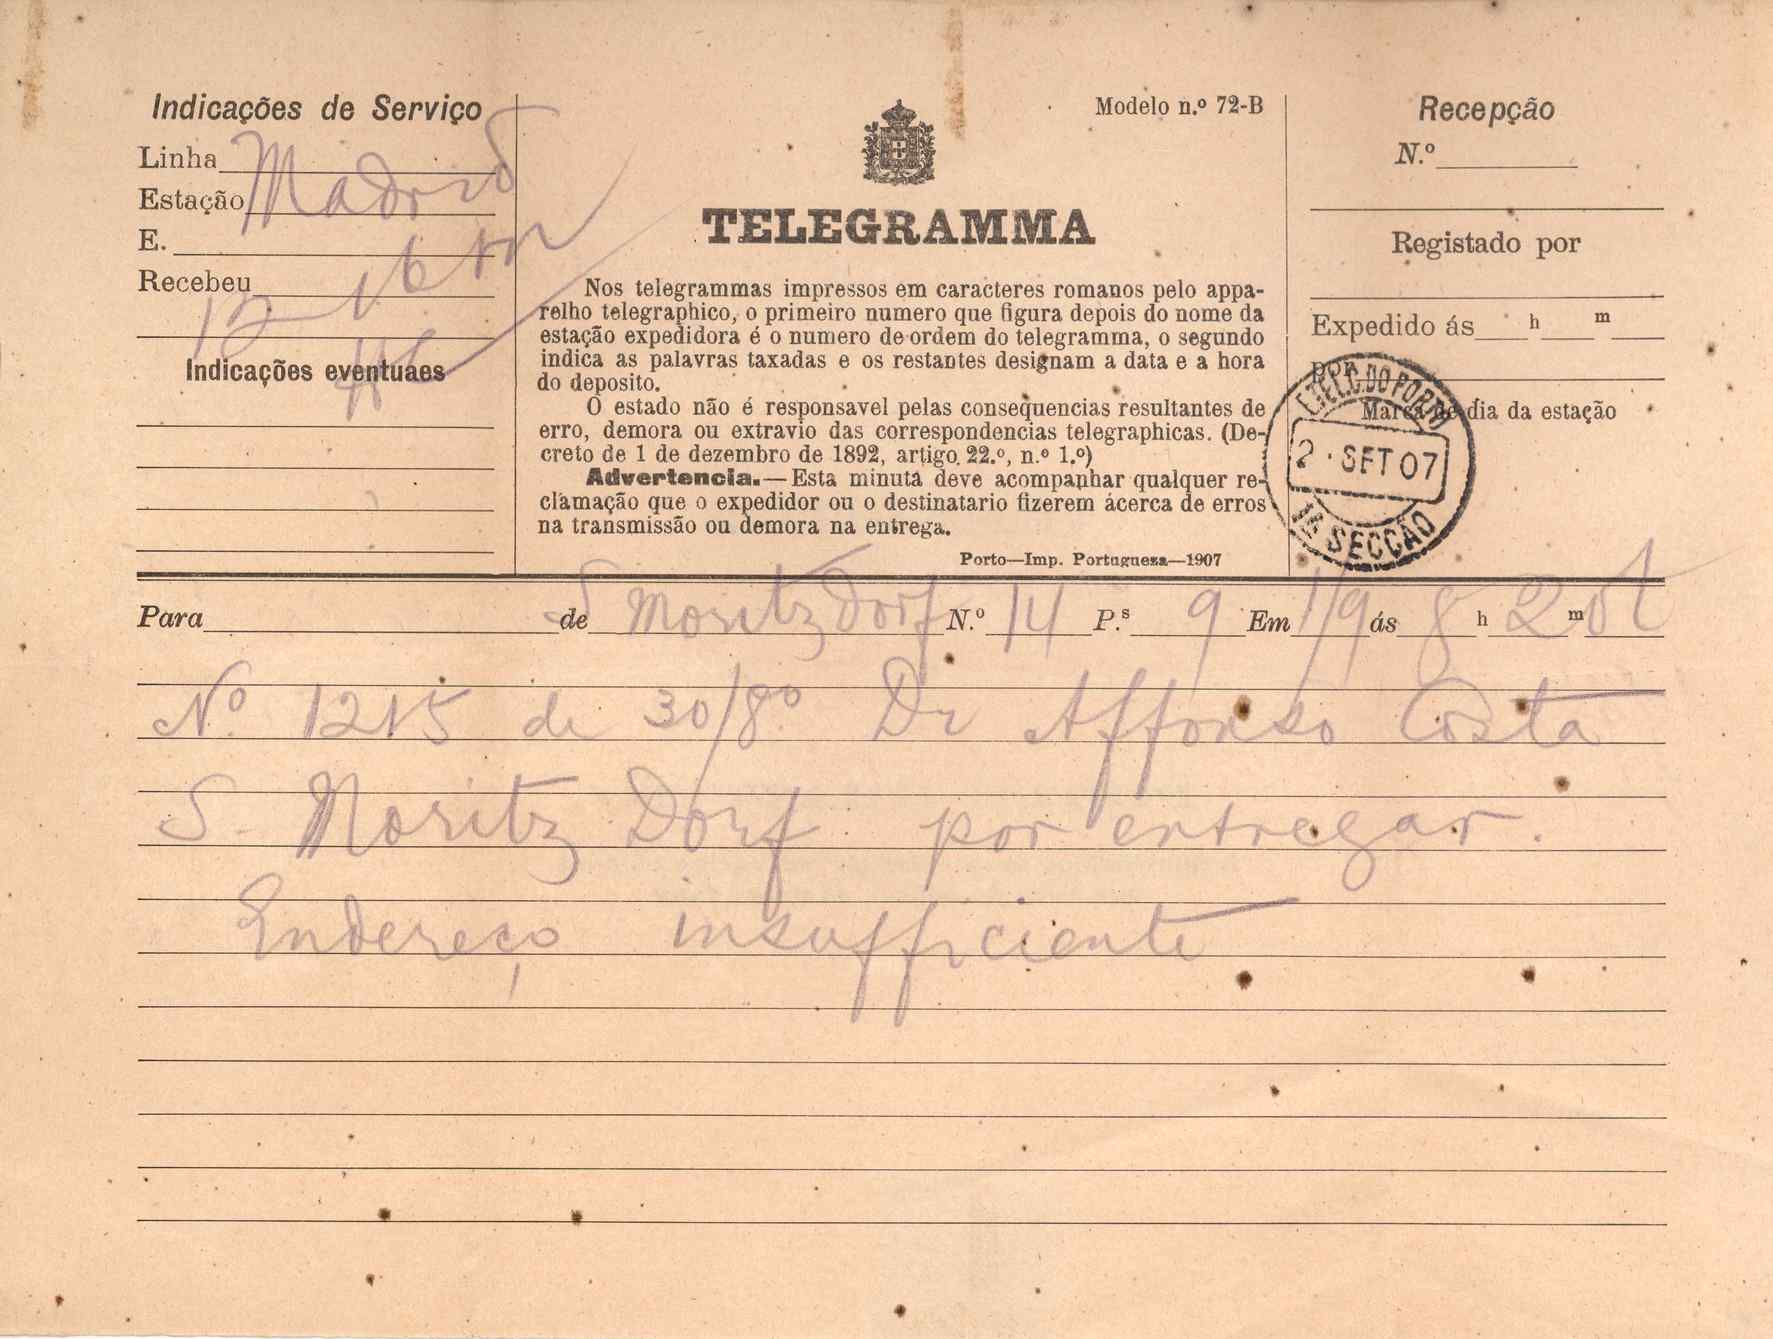 Indicações de Serviço
Linha
Madrid
Estação
E.
Recebeu
12 16
Indicações eventuaes
Modelo n.º 72-B
TELEGRAMMA
Nos telegrammas impressos em caracteres romanos pelo appa-
relho telegraphico, o primeiro numero que figura depois do nome da
estação expedidora é o numero de ordem do telegramma, o segundo
indica as palavras taxadas e os restantes designam a data e a hora
do deposito.
O estado não é responsavel pelas consequencias resultantes de
erro, demora ou extravio das correspondencias telegraphicas. (De-
creto de 1 de dezembro de 1892, artigo 22.º, n.º 1.º)
Advertencia.—Esta minuta deve acompanhar qualquer re-
clamação que o expedidor ou o destinatario fizerem ácerca de erros
na transmissão ou demora na entrega.
Porto—Imp. Portugueza—1907
Recepção
N.º
Registado por
Expedido ás h m
por
Marca de dia da estação
2 · SET 07
SECCÃO
Para de S Moritz Dorf N.º 14 P.s 9 Em 1/9 ás 8 h 20 m t
Nº 1215 de 30/8º Dr Affonso Costa
S. Moritz Dorf por entregar.
Endereço insufficiente